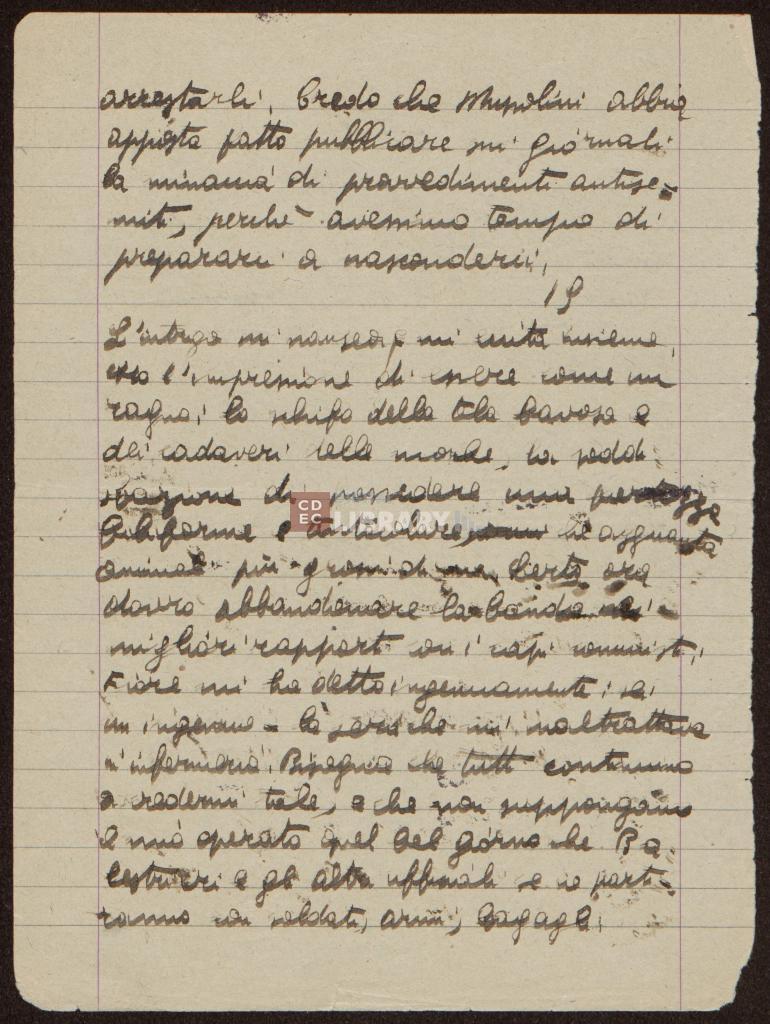 arrestarli. Credo che Mussolini abbia
apposta fatto pubblicare sui giornali
la minaccia di provvedimenti antise=
miti, perchè avessimo tempo di
prepararci a nasconderci.
19
L'intrigo mi nausea e mi eccita insieme,
ho l'impressione di essere come un
ragno: lo schifo della tela bavosa e
dei cadaveri delle mosche, la soddi
sfazione di possedere una
filiforme e ha agguantato
animali più grossi di me. Certo ora
dovrò abbandonare la banda nei
migliori rapporti con i capi comunisti.
Fiore mi ha detto ingenuamente: sei
un ingenuo - la sera che mi maltrattava
in infermeria. Bisogna che tutti continuino
a credermi tale, e che non suppongano
il mio operato quel bel giorno che Ba
lestrieri e gli altri ufficiali e io parti=
ranno con soldati, armi, bagagli.
CDEC LIBRARY